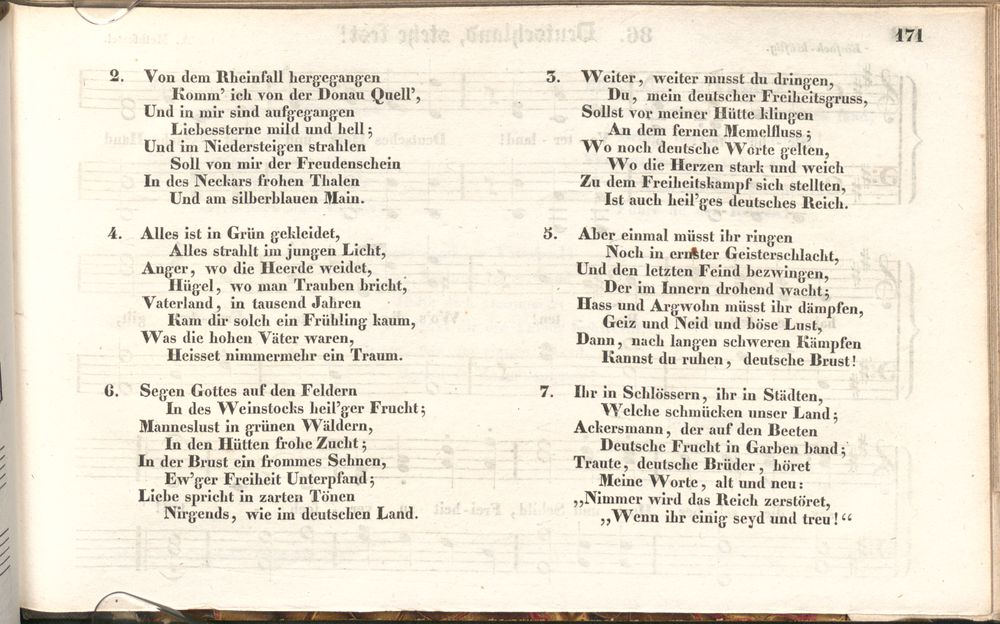 171
2. Von dem Rheinfall hergegangen
Komm' ich von der Donau Quell',
Und in mir sind aufgegangen
Liebessterne mild und hell;
Und im Niedersteigen strahlen
Soll von mir der Freudenschein
In des Neckars frohen Thalen
Und am silberblauen Main.
4. Alles ist in Grün gekleidet,
Alles strahlt im jungen Licht,
Anger, wo die Heerde weidet,
Hügel, wo man Trauben bricht,
Vaterland, in tausend Jahren
Kam dir solch ein Frühling kaum,
Was die hohen Väter waren,
Heisset nimmermehr ein Traum.
6. Segen Gottes auf den Feldern
In des Weinstocks heil'ger Frucht;
Manneslust in grünen Wäldern,
In den Hütten frohe Zucht;
In der Brust ein frommes Sehnen,
Ew'ger Freiheit Unterpfand;
Liebe spricht in zarten Tönen
Nirgends, wie im deutschen Land.
3. Weiter, weiter musst du dringen,
Du, mein deutscher Freiheitsgruss,
Sollst vor meiner Hütte klingen
An dem fernen Memelfluss;
Wo noch deutsche Worte gelten,
Wo die Herzen stark und weich
Zu dem Freiheitskampf sich stellten,
Ist auch heil'ges deutsches Reich.
5. Aber einmal müsst ihr ringen
Noch in ernster Geisterschlacht,
Und den letzten Feind bezwingen,
Der im Innern drohend wacht;
Hass und Argwohn müsst ihr dämpfen,
Geiz und Neid und böse Lust,
Dann, nach langen schweren Kämpfen
Kannst du ruhen, deutsche Brust!
7. Ihr in Schlössern, ihr in Städten,
Welche schmücken unser Land;
Ackersmann, der auf den Beeten
Deutsche Frucht in Garben band;
Traute, deutsche Brüder, höret
Meine Worte, alt und neu:
„Nimmer wird das Reich zerstöret,
„Wenn ihr einig seyd und treu!“